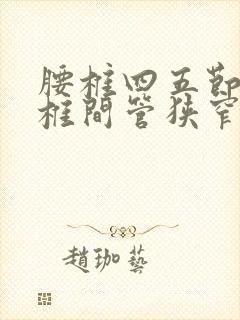 腰柱四五節
柱間管狹窄
趙珈藝